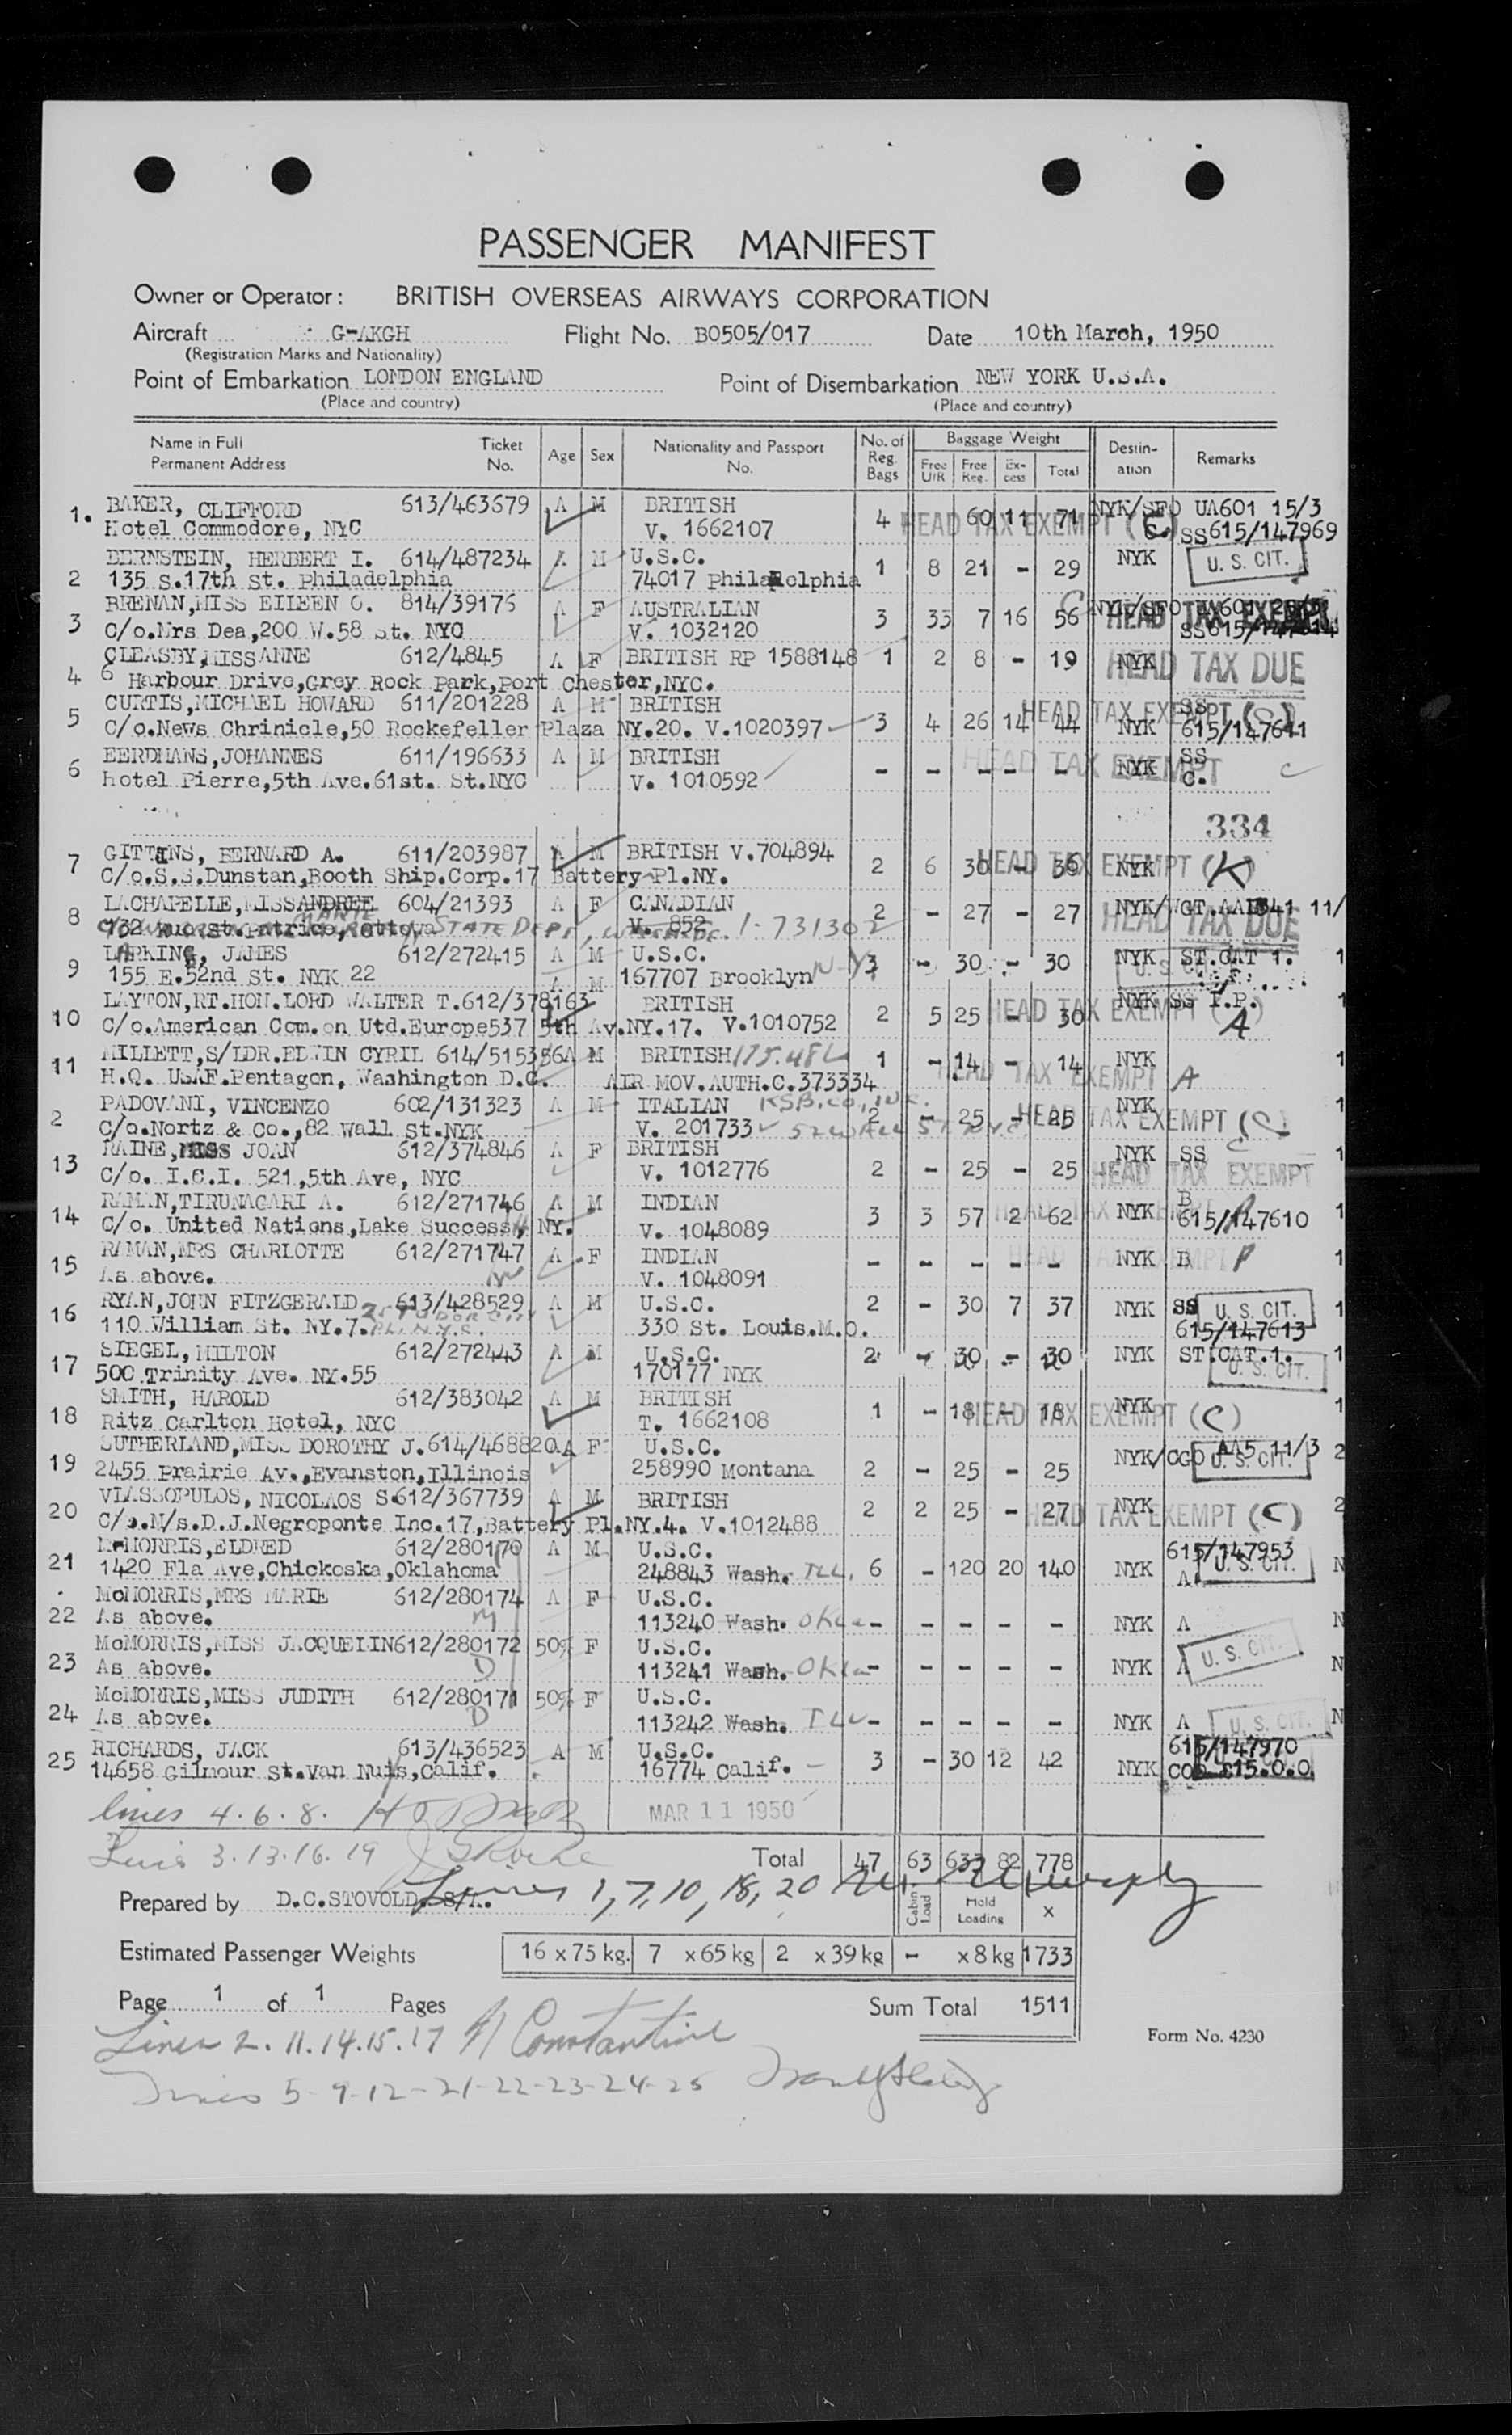 PASSENGER MANIFEST
Owner or Operator: BRITISH OVERSEAS AIRWAYS CORPORATION
Aircraft G-AKGH Flight No. B0505/017 Date 10th March, 1950
(Registration Marks and Nationality)
Point of Embarkation LONDON ENGLAND Point of Disembarkation NEW YORK U.S.A.
(Place and country) (Place and country)
Name in Full Permanent Address Ticket No. Age Sex Nationality and Passport No. No. of Reg. Bags Baggage Weight Free U/R Free Reg. Ex-cess Total Destin-ation Remarks
1. BAKER, CLIFFORD 613/463679 A M BRITISH 4 60 11 71 NYK/SFO UA601 15/3
Hotel Commodore, NYC V. 1662107 HEAD TAX EXEMPT (C) SS615/147969
2 BERNSTEIN, HERBERT I. 614/487234 A M U.S.C. 1 8 21 - 29 NYK U. S. CIT.
135 S.17th St. Philadelphia 74017 Philadelphia
3 BRENAN,MISS EILEEN O. 814/39176 A F AUSTRALIAN 3 33 7 16 56 NYK/SFO HEAD TAX EXEMPT
C/o.Mrs Dea,200 W.58 St. NYC V. 1032120
4 CLEASBY,MISS ANNE 612/4845 A F BRITISH RP 1588148 1 2 8 - 10 NYK HEAD TAX DUE
6 Harbour Drive,Grey Rock Park,Port Chester,NYC.
5 CURTIS,MICHAEL HOWARD 611/201228 A M BRITISH 3 4 26 14 44 NYK SS HEAD TAX EXEMPT (C)
C/o.News Chrinicle,50 Rockefeller Plaza NY.20. V.1020397 615/147611
6 EERDMANS,JOHANNES 611/196633 A M BRITISH - - - - - NYK SS HEAD TAX EXEMPT C
Hotel Pierre,5th Ave.61st. St.NYC V. 1010592 C.
334
7 GITTINS, BERNARD A. 611/203987 A M BRITISH V.704894 2 6 30 - 36 NYK HEAD TAX EXEMPT (K)
C/o.S.S.Dunstan,Booth Ship.Corp.17 Battery Pl.NY.
8 LACHAPELLE,MISS ANDREE 604/21393 A F CANADIAN 2 - 27 - 27 NYK/WGT. 11/ HEAD TAX DUE
MARIE
STATE DEPT, V. 852. 1-731302
9 LARKING, JAMES 612/272415 A M U.S.C. 3 - 30 - 30 NYK ST.CAT 1. 1
155 E.52nd St. NYK 22 167707 Brooklyn N.Y.
10 LAYTON,RT.HON.LORD WALTER T.612/378163 A M BRITISH 2 5 25 - 30 NYK SS HEAD TAX EXEMPT (A)
C/o.American Com.on Utd.Europe537 5th Av.NY.17. V.1010752
11 MILLETT,S/LDR.EDWIN CYRIL 614/515356 A M BRITISH 1 - 14 - 14 NYK HEAD TAX EXEMPT A 1
H.Q. USAF.Pentagon, Washington D.C. AIR MOV.AUTH.C.373334
2 PADOVANI, VINCENZO 602/131323 A M ITALIAN 2 - 25 - 25 NYK HEAD TAX EXEMPT (C) 1
C/o.Nortz & Co.,82 Wall St.NYK V. 201733
13 RAINE,MISS JOAN 612/374846 A F BRITISH 2 - 25 - 25 NYK SS HEAD TAX EXEMPT C 1
C/o. I.C.I. 521,5th Ave, NYC V. 1012776
14 RAMAN,TIRUNAGARI A. 612/271746 A M INDIAN 3 3 57 2 62 NYK B 1
C/o. United Nations,Lake Success, NY. V. 1048089 615/147610
15 RAMAN,MRS CHARLOTTE 612/271747 A F INDIAN - - - - - NYK B 1
As above. V. 1048091
16 RYAN,JOHN FITZGERALD 613/428529 A M U.S.C. 2 - 30 7 37 NYK SS U. S. CIT. 1
110 William St. NY.7. 330 St. Louis.M.O. 615/147613
17 SIEGEL, MILTON 612/272443 A M U.S.C. 2 - 30 - 30 NYK ST.CAT.1. 1
500 Trinity Ave. NY.55 170177 NYK U. S. CIT.
18 SMITH, HAROLD 612/383042 A M BRITISH 1 - 18 - 18 NYK HEAD TAX EXEMPT (C) 1
Ritz Carlton Hotel, NYC T. 1662108
19 SUTHERLAND,MISS DOROTHY J.614/468820 A F U.S.C. 2 - 25 - 25 NYK/CGO AA5 11/3 U. S. CIT. 2
2455 Prairie Av.,Evanston,Illinois 258990 Montana
20 VLASSOPULOS, NICOLAOS S.612/367739 A M BRITISH 2 2 25 - 27 NYK HEAD TAX EXEMPT (C) 2
C/o.M/s.D.J.Negroponte Inc.17,Battery Pl.NY.4. V.1012488
21 McMORRIS,ELDRED 612/280170 A M U.S.C. 6 - 120 20 140 NYK 615/147953 N
1420 Fla Ave,Chickoska,Oklahoma 248843 Wash. A U. S. CIT.
22 McMORRIS,MRS MARIE 612/280174 A F U.S.C. - - - - - NYK A N
As above. M 113240 Wash. Okla
23 McMORRIS,MISS JACQUELIN612/280172 50% F U.S.C. - - - - - NYK A U. S. CIT. N
As above. D 113241 Wash. Okla
24 McMORRIS,MISS JUDITH 612/280171 50% F U.S.C. - - - - - NYK A U. S. CIT. N
As above. D 113242 Wash.
25 RICHARDS, JACK 613/436523 A M U.S.C. 3 - 30 12 42 NYK 615/147970
14658 Gilmour St.Van Nuys,Calif. 16774 Calif. COD £15.0.0.
lines 4.6.8. MAR 11 1950
3.13.16.19
Total 47 63 633 82 778
Lines 1,7,10,18,20 Murphy
Prepared by D.C.STOVOLD, S/A. Cabin Load Hold Loading x
Estimated Passenger Weights 16 x 75 kg. 7 x 65 kg 2 x 39 kg - x 8 kg 1733
Page 1 of 1 Pages Sum Total 1511
Form No. 4230
Lines 2.11.14.15.17 Constantine
Lines 5-9-12-21-22-23-24-25